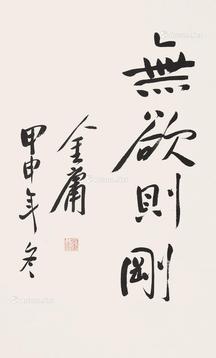 無欲則剛
金庸
甲申年冬